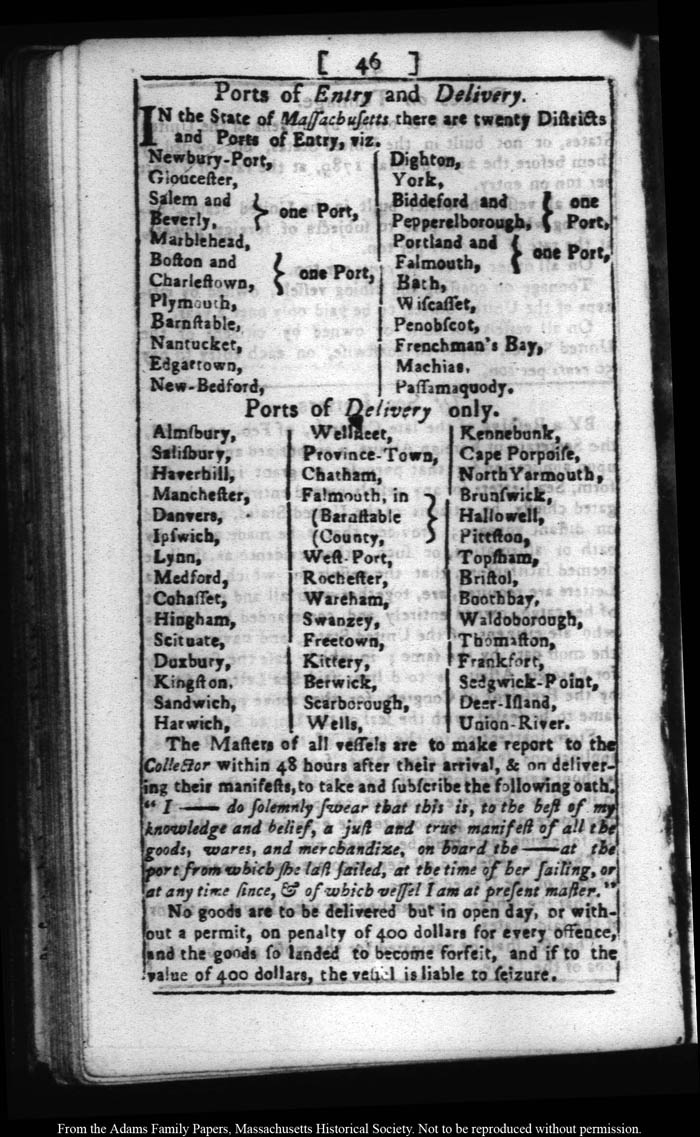 [ 46 ]
Ports of Entry and Delivery.
IN the State of Maſſachuſetts there are twenty Diſtricts
and Ports of Entry, viz.
Newbury-Port,
Glouceſter,
Salem and
Beverly, } one Port,
Marblehead,
Boſton and
Charleſtown, } one Port,
Plymouth,
Barnſtable,
Nantucket,
Edgartown,
New-Bedford,
Dighton,
York,
Biddeford and } one
Pepperelborough, { Port,
Portland and
Falmouth, } one Port,
Bath,
Wiſcaſſet,
Penobſcot,
Frenchman's Bay,
Machias,
Paſſamaquody.
Ports of Delivery only.
Almſbury,
Saliſbury,
Haverhill,
Mancheſter,
Danvers,
Ipſwich,
Lynn,
Medford,
Cohaſſet,
Hingham,
Scituate,
Duxbury,
Kingſton,
Sandwich,
Harwich,
Wellfleet,
Province-Town,
Chatham,
Falmouth, in
(Barnſtable }
(County,
Weſt-Port,
Rocheſter,
Wareham,
Swanzey,
Freetown,
Kittery,
Berwick,
Scarborough,
Wells,
Kennebunk,
Cape Porpoiſe,
North Yarmouth,
Brunſwick,
Hallowell,
Pittſton,
Topſham,
Briſtol,
Boothbay,
Waldoborough,
Thomaſton,
Frankfort,
Sedgwick-Point,
Deer-Iſland,
Union-River.
The Maſters of all veſſels are to make report to the
Collector within 48 hours after their arrival, & on deliver-
ing their manifeſts, to take and ſubſcribe the following oath.
“ I —— do ſolemnly ſwear that this is, to the beſt of my
knowledge and belief, a juſt and true manifeſt of all the
goods, wares, and merchandize, on board the —— at the
port from which ſhe laſt ſailed, at the time of her ſailing, or
at any time ſince, & of which veſſel I am at preſent maſter.”
No goods are to be delivered but in open day, or with-
out a permit, on penalty of 400 dollars for every offence,
and the goods ſo landed to become forfeit, and if to the
value of 400 dollars, the veſſel is liable to ſeizure.
From the Adams Family Papers, Massachusetts Historical Society. Not to be reproduced without permission.